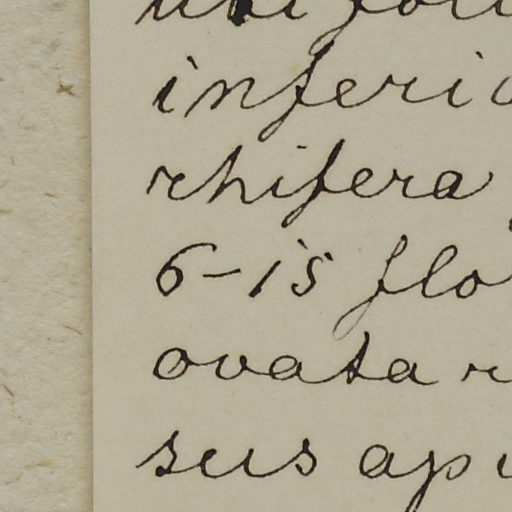 inferio
rhifera
6-15 flo
ovata r
sus api